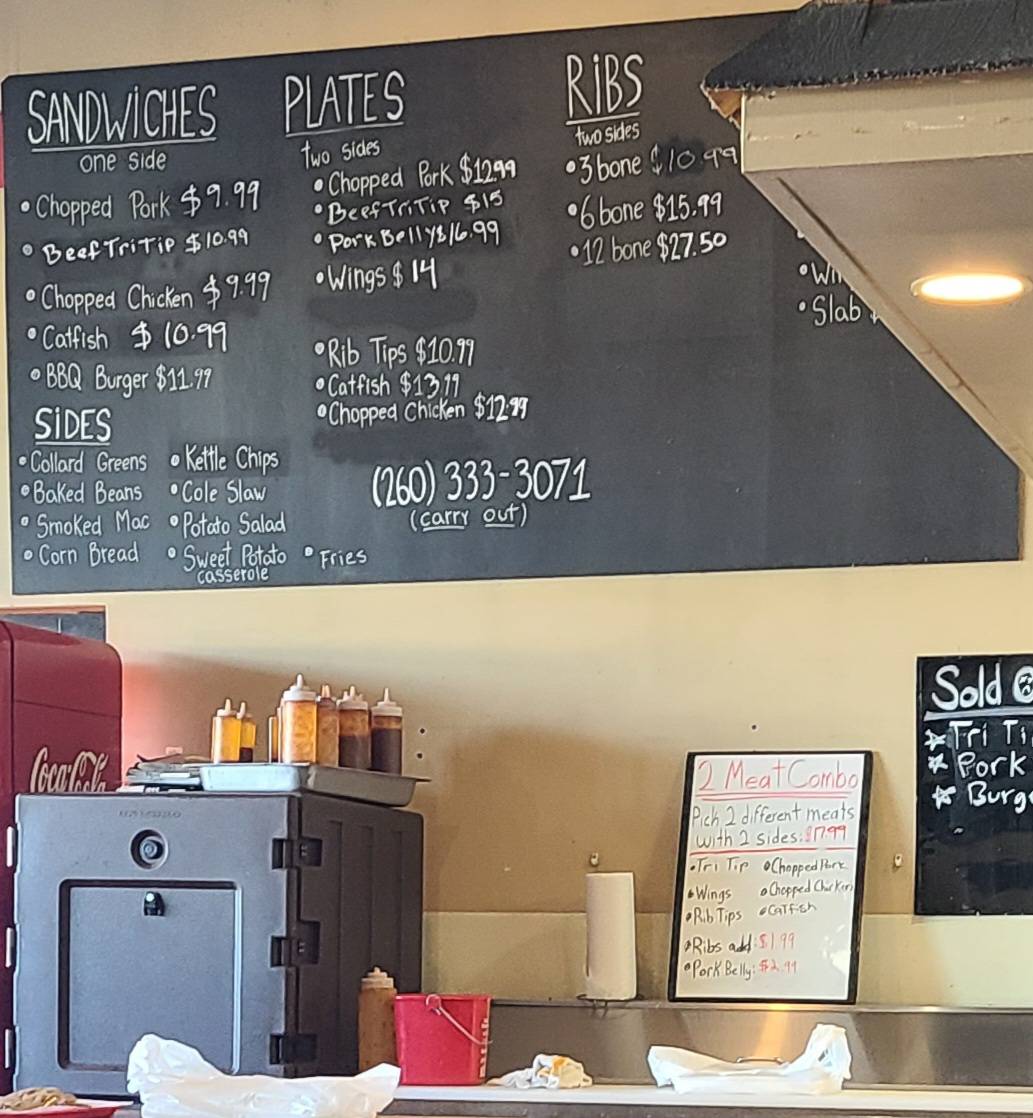 SANDWICHES
one side
• Chopped Pork $9.99
• Beef Tri Tip $10.99
• Chopped Chicken $9.99
• Catfish $10.99
• BBQ Burger $11.99
SIDES
• Collard Greens • Kettle Chips
• Baked Beans • Cole Slaw
• Smoked Mac • Potato Salad
• Corn Bread • Sweet Potato casserole • Fries
PLATES
two sides
• Chopped Pork $12.99
• Beef Tri Tip $15
• Pork Belly $16.99
• Wings $14
• Rib Tips $10.99
• Catfish $13.99
• Chopped Chicken $12.99
(260) 333-3071
(carry out)
RIBS
two sides
• 3 bone $10.99
• 6 bone $15.99
• 12 bone $27.50
• Slab
Coca-Cola
2 Meat Combo
Pick 2 different meats
with 2 sides: $17.99
• Tri Tip • Chopped Pork
• Wings • Chopped Chicken
• Rib Tips • Catfish
• Ribs add: $1.99
• Pork Belly: $2.99
Sold
Tri
Pork